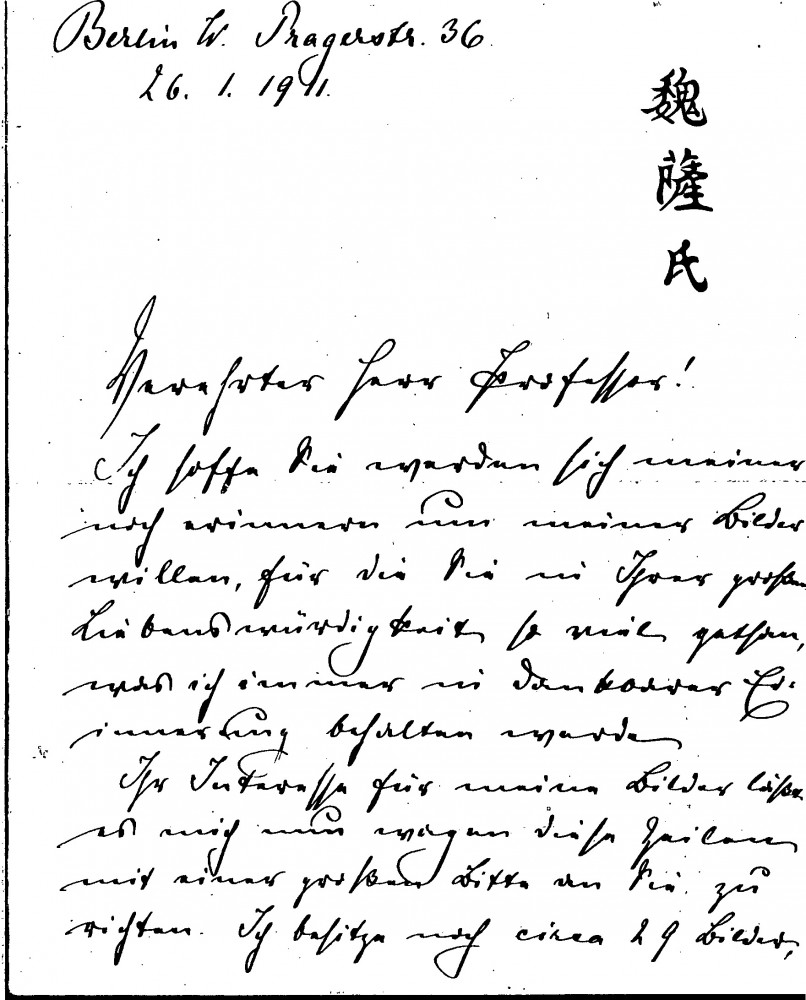 Berlin W. Pragerstr. 36
26. 1. 1911.
魏
薩
氏
Verehrter Herr Professor!
Ich hoffe Sie werden sich meiner
noch erinnern um meiner Bilder
willen, für die Sie in Ihrer großen
Liebenswürdigkeit so viel gethan,
was ich immer in dankbarer Er-
innerung behalten werde
Ihr Interesse für meine Bilder läßt
es mich nun wagen diese Zeilen
mit einer großen Bitte an Sie zu
richten. Ich besitze noch circa 29 Bilder,